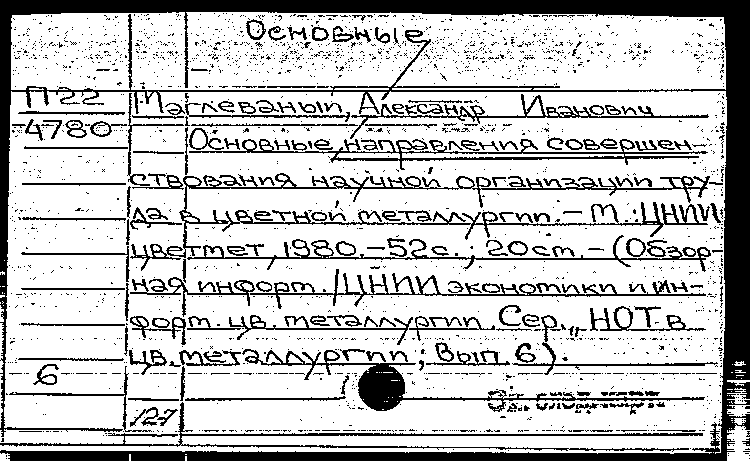 Основные
П22 Маглеваный, Александр Иванович
4780 Основные направления совершен-
ствования научной организации тру-
да в цветной металлургии. – М. : ЦНИИ
цветмет, 1980. – 52 с. ; 20 см. – (Обзор-
ная информ. / ЦНИИ экономики и ин-
форм. цв. металлургии. Сер. „НОТ в
цв. металлургии ; Вып. 6).
6
127